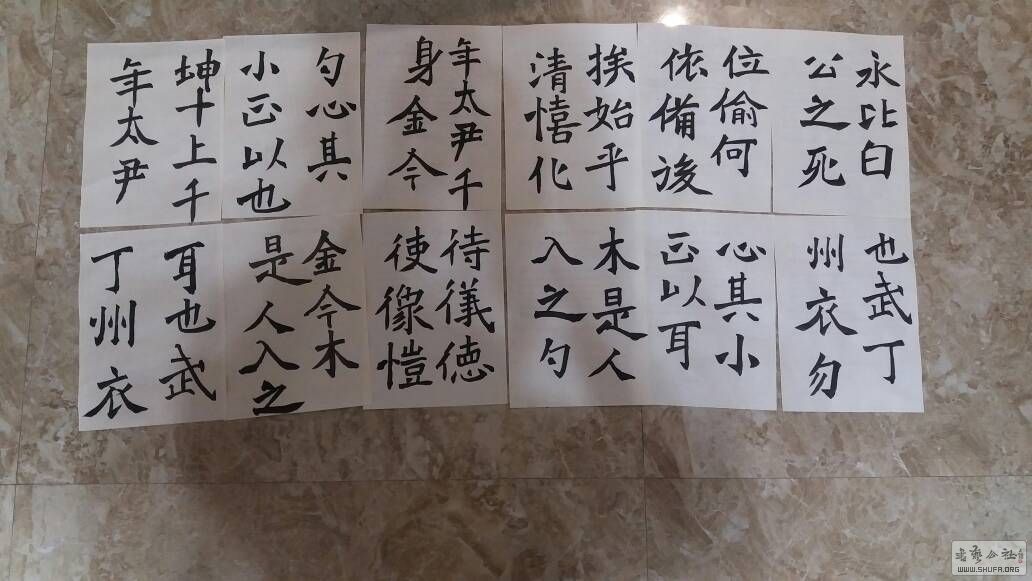 永比白
公之死
位偷何
依備後
挨始乎
清憘化
年太尹千
身金今
勺心其
小正以也
坤十上千
年太尹
也武丁
州衣勿
心其小
正以耳
木是人
入之勺
待儀徳
使像愷
金今木
是人入之
耳也武
丁州衣
WWW.SHUFA.ORG